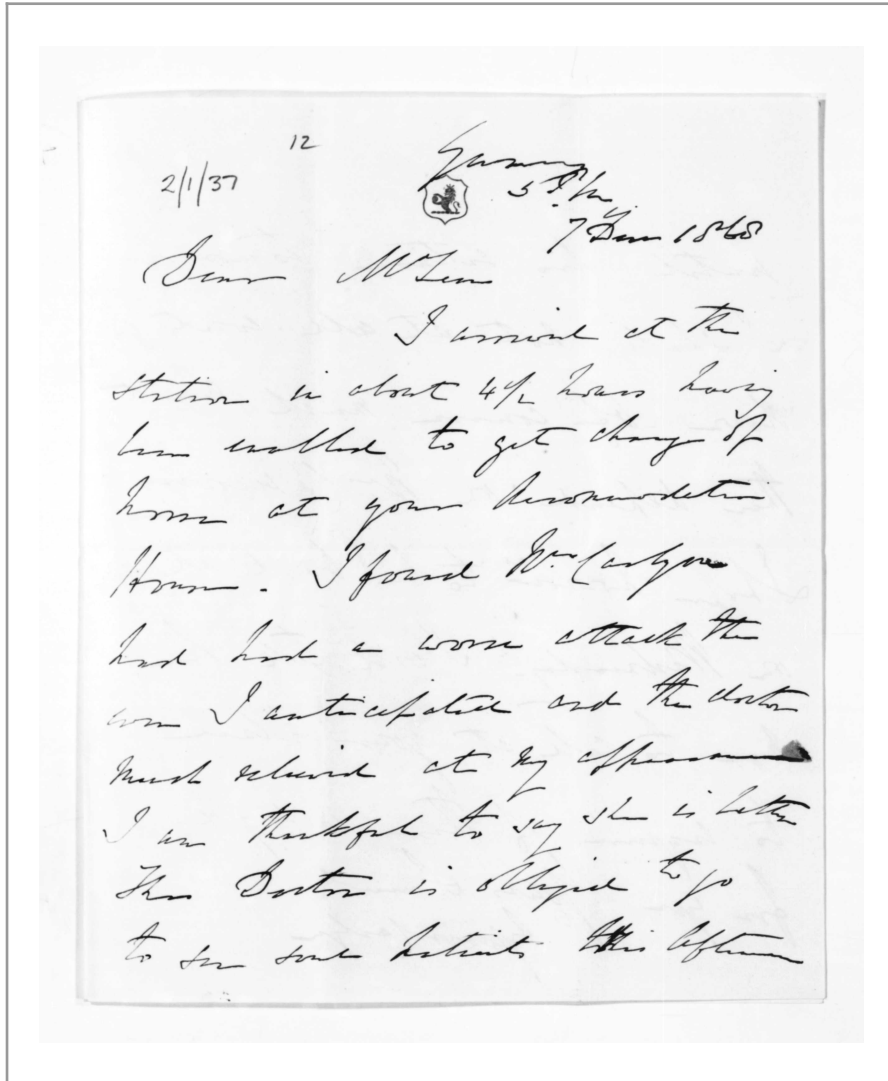 12
2/1/37
5 P.M.
7 Dec 1868
Dear McLean
I arrived at the
station in about 4½ hours having
been enabled to get change of
horse at your Accommodation
House. I found Mrs
had had a worse attack than
even I anticipated and the doctor
much relieved at my appearance
I am thankful to say she is better
The Doctor is obliged to go
to see some patients this afternoon